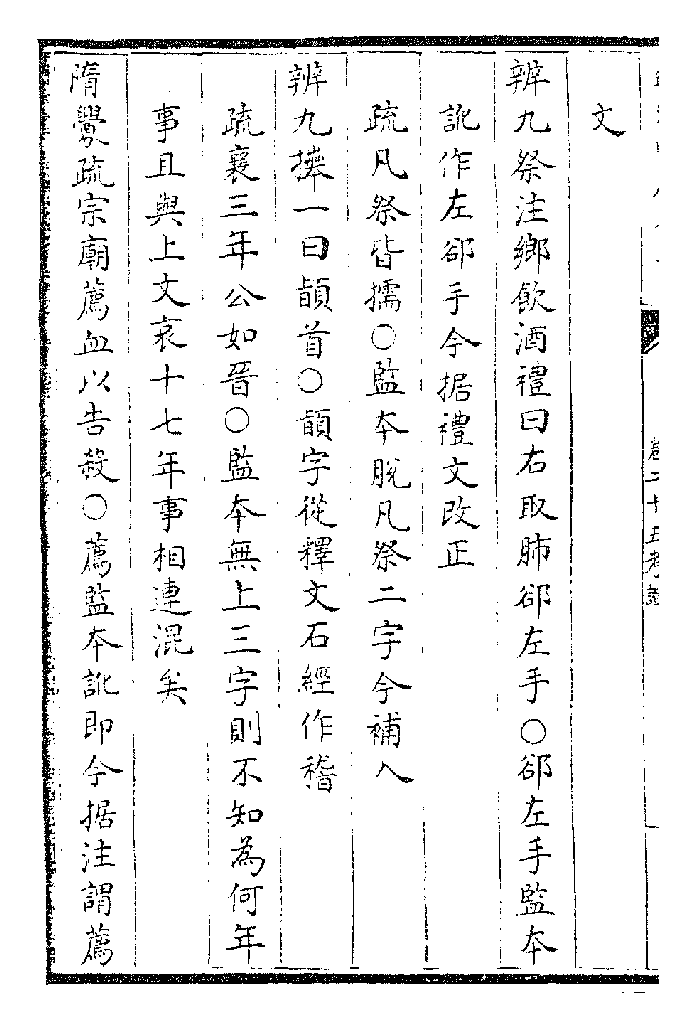 卷二十五考證
文
辨九祭注鄉飲酒禮曰右取肺郤左手○郤左手監本
訛作左郤手今据禮文改正
疏凡祭皆擩○監本脫凡祭二字今補入
辨九𢷎一曰䭫首○䭫字從釋文石經作稽
疏襄三年公如晉○監本無上三字則不知為何年
事且與上文哀十七年事相連混矣
隋釁疏宗廟薦血以告殺○薦監本訛即今据注謂薦